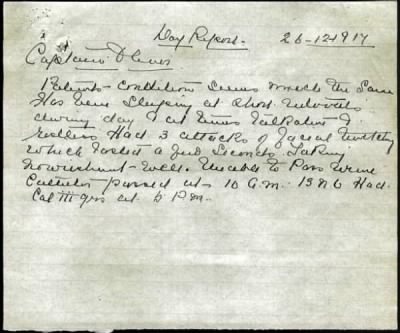 Day Report. 26-12-1917
Captain
Patients - Condition seems much the Same
Has been Sleeping at Short intervals
during day & at times Talkative &
restless Had 3 attacks of facial twitching
which lasted a few Seconds. Taking
nourishment - well. Unable to Pass urine
Catheter passed at 10 A.M. 13 Had
Cal III grs at 5 P.M.